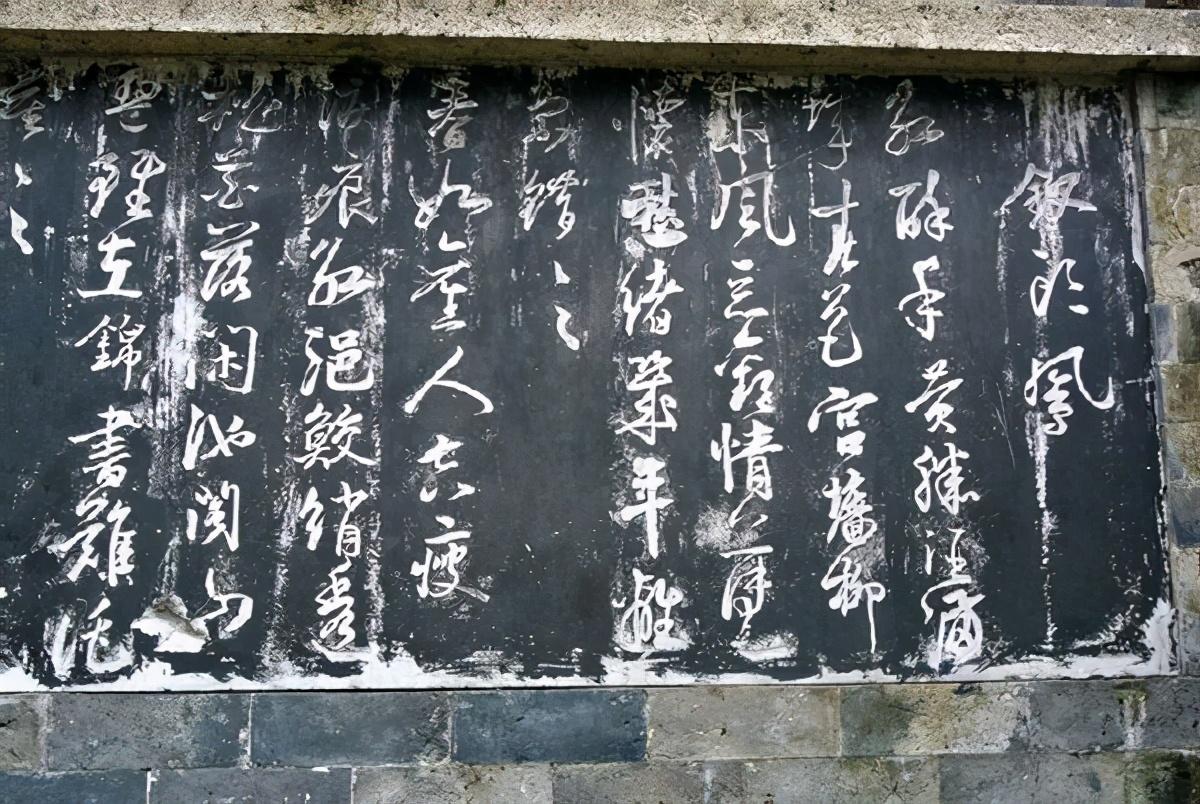 釵頭鳳
紅酥手黃縢酒滿
城春色宮墻柳
東風惡歡情薄一
懷愁緒幾年離
索錯〻〻
春如舊人空瘦
淚痕紅浥鮫綃透
桃花落閑池閣山
盟雖在錦書難託
莫〻〻